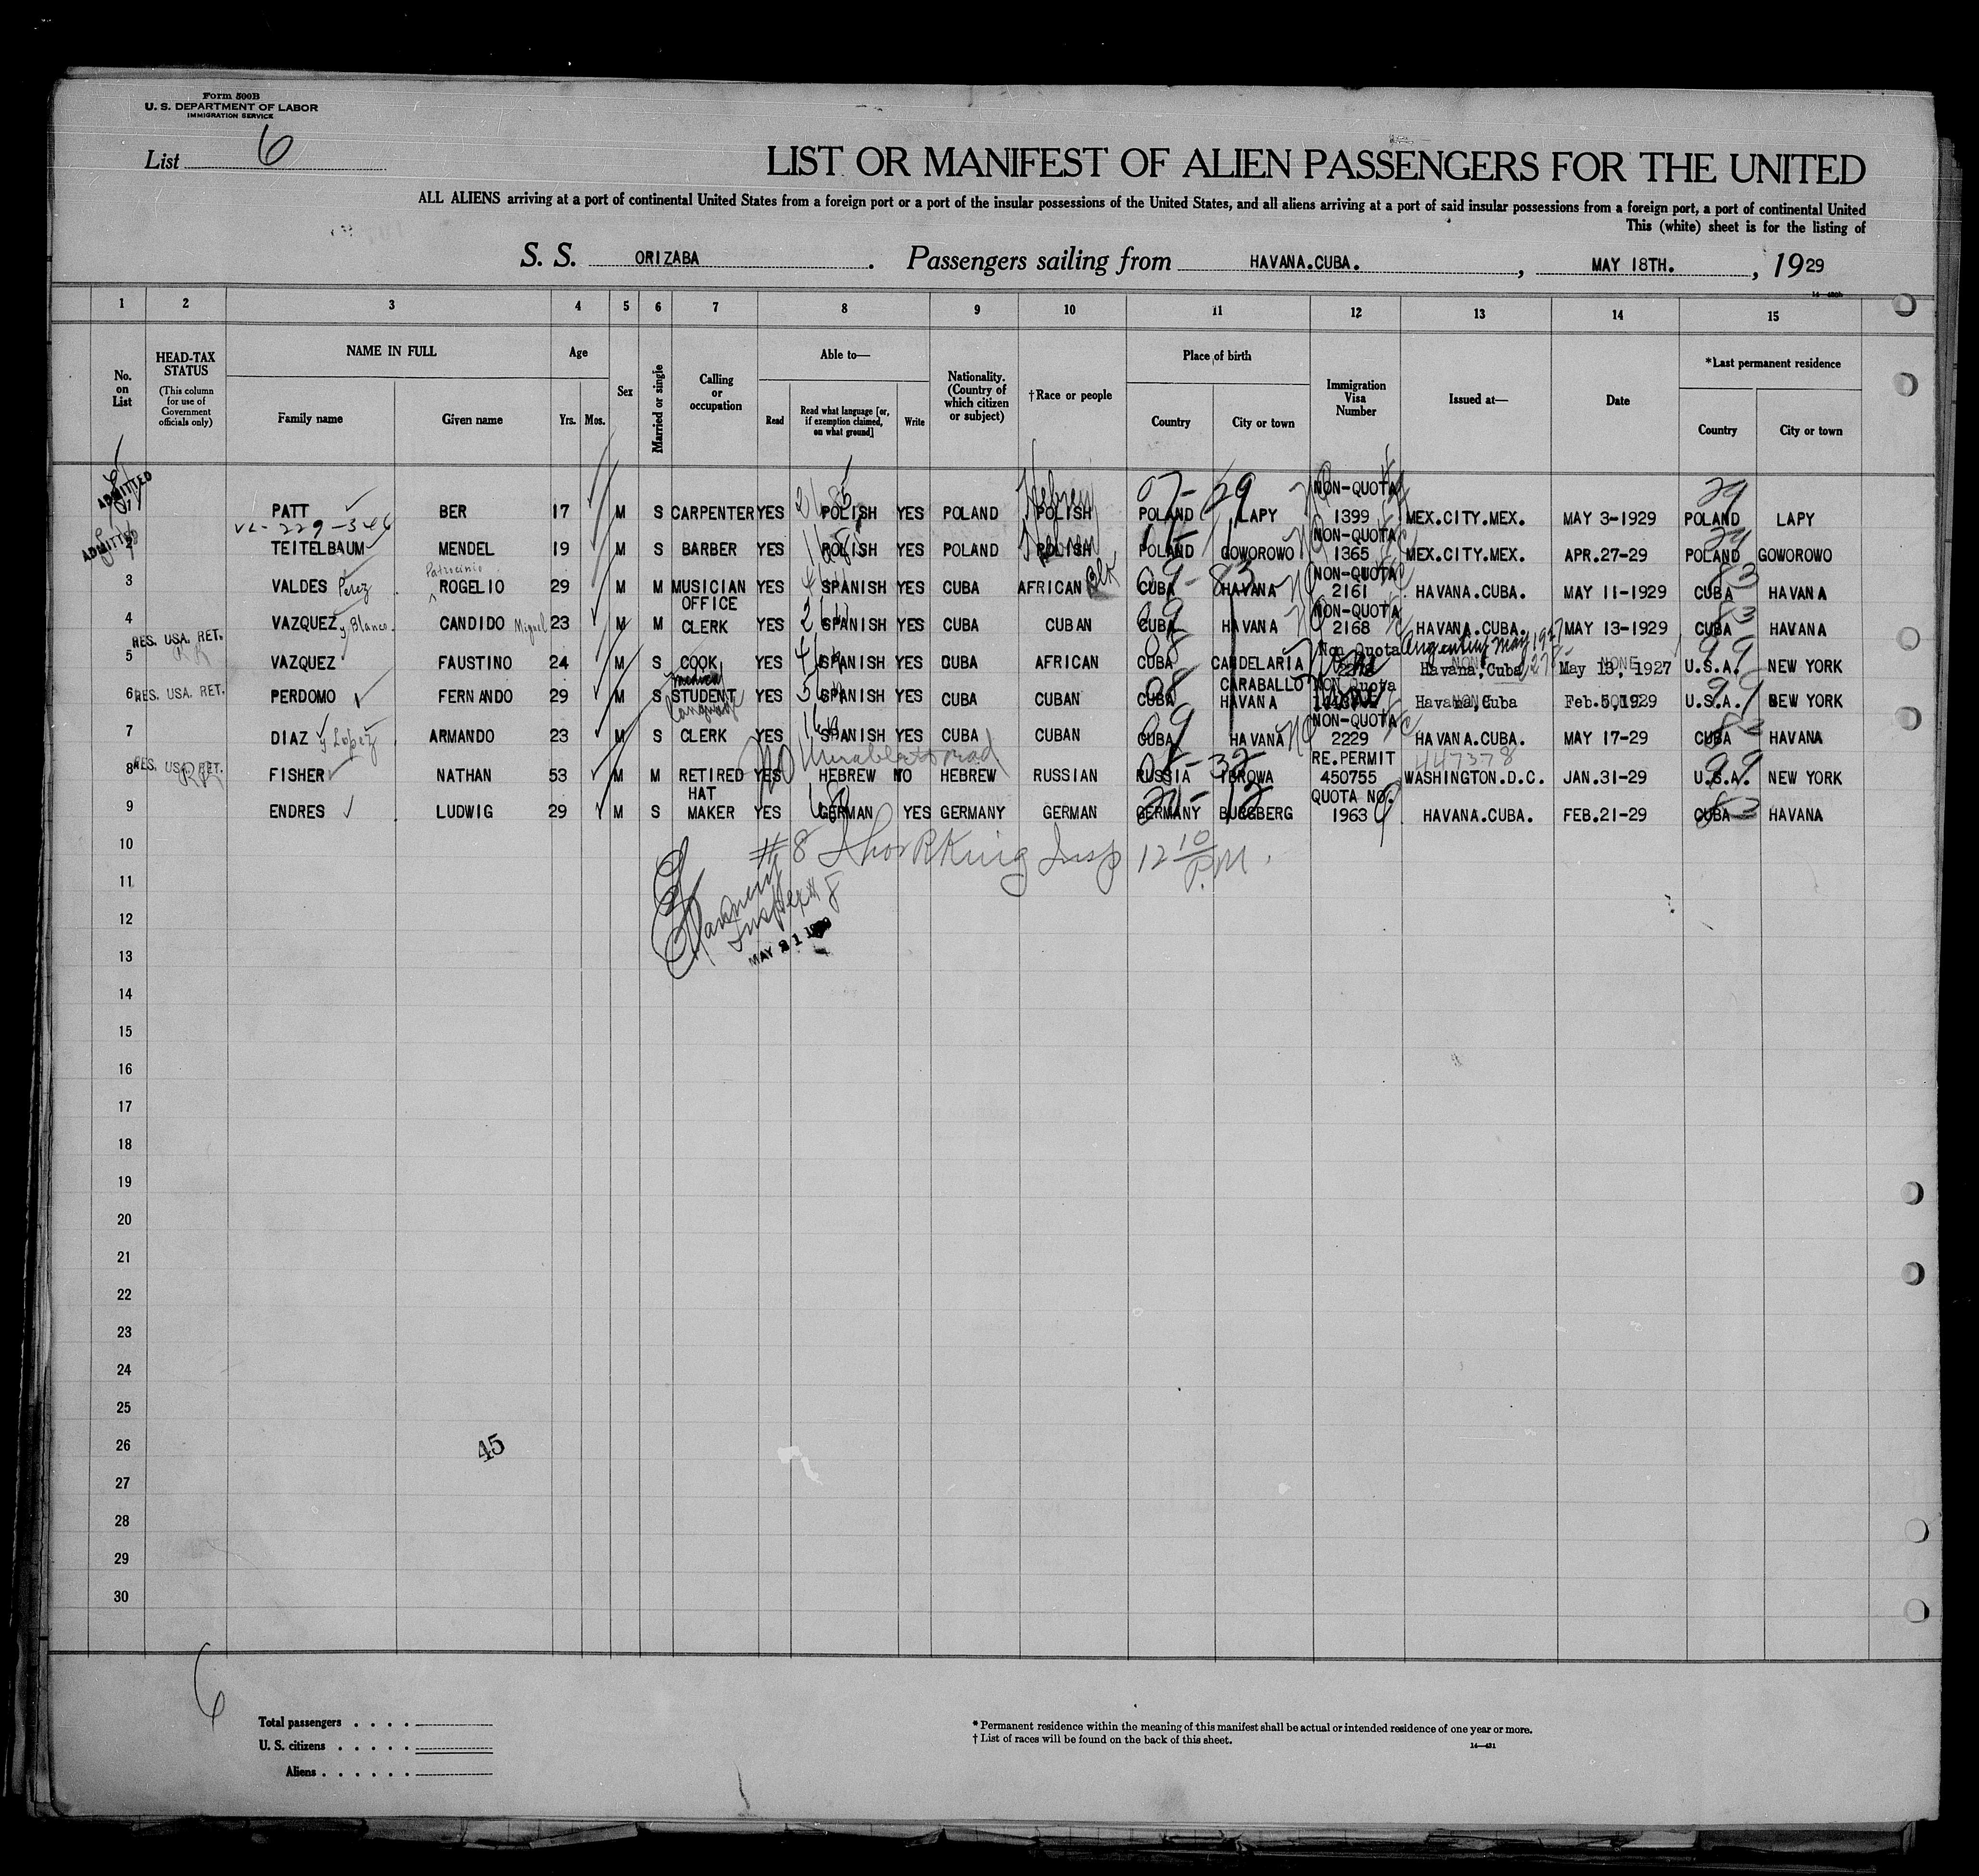 Form 500B
U. S. DEPARTMENT OF LABOR
IMMIGRATION SERVICE
List 6
LIST OR MANIFEST OF ALIEN PASSENGERS FOR THE UNITED
ALL ALIENS arriving at a port of continental United States from a foreign port or a port of the insular possessions of the United States, and all aliens arriving at a port of said insular possessions from a foreign port, a port of continental United
This (white) sheet is for the listing of
S. S. ORIZABA. Passengers sailing from HAVANA.CUBA., MAY 18TH., 1929
1 2 3 4 5 6 7 8 9 10 11 12 13 14 15
No. on List
HEAD-TAX STATUS
(This column for use of Government officials only)
NAME IN FULL
Family name Given name
Age
Yrs. Mos.
Sex
Married or single
Calling or occupation
Able to—
Read
Read what language [or, if exemption claimed, on what ground]
Write
Nationality. (Country of which citizen or subject)
†Race or people
Place of birth
Country City or town
Immigration Visa Number
Issued at—
Date
*Last permanent residence
Country City or town
ADMITTED PATT BER 17 M S CARPENTER YES POLISH YES POLAND POLISH Hebrew POLAND LAPY NON-QUOTA 1399 MEX.CITY.MEX. MAY 3-1929 POLAND LAPY
ADMITTED TEITELBAUM MENDEL 19 M S BARBER YES POLISH YES POLAND POLISH Hebrew POLAND GOWOROWO NON-QUOTA 1365 MEX.CITY.MEX. APR.27-29 POLAND GOWOROWO
3 VALDES Perez Patrocinio ROGELIO 29 M M MUSICIAN YES SPANISH YES CUBA AFRICAN Blk CUBA HAVANA NON-QUOTA 2161 HAVANA.CUBA. MAY 11-1929 CUBA HAVANA
4 VAZQUEZ y Blanco CANDIDO Miguel 23 M M OFFICE CLERK YES SPANISH YES CUBA CUBAN CUBA HAVANA NON-QUOTA 2168 HAVANA.CUBA. MAY 13-1929 CUBA HAVANA
5 RES. USA. RET. VAZQUEZ FAUSTINO 24 M S COOK YES SPANISH YES CUBA AFRICAN CUBA CANDELARIA Non Quota Havana,Cuba May 13, 1927 U.S.A. NEW YORK
6 RES. USA. RET. PERDOMO FERNANDO 29 M S STUDENT YES SPANISH YES CUBA CUBAN CUBA CARABALLO HAVANA NON Quota Havana,Cuba U.S.A. NEW YORK
7 DIAZ y Lopez ARMANDO 23 M S CLERK YES SPANISH YES CUBA CUBAN CUBA HAVANA NON-QUOTA 2229 HAVANA.CUBA. MAY 17-29 CUBA HAVANA
8 RES. USA. RET. FISHER NATHAN 53 M M RETIRED YES HEBREW NO HEBREW RUSSIAN RUSSIA RE.PERMIT 450755 447378 WASHINGTON.D.C. JAN.31-29 U.S.A. NEW YORK
9 ENDRES LUDWIG 29 M S HAT MAKER YES GERMAN YES GERMANY GERMAN GERMANY BURGBERG QUOTA NO. 1963 HAVANA.CUBA. FEB.21-29 CUBA HAVANA
10
11
12
MAY 21 1929
13
14
15
16
17
18
19
20
21
22
23
24
25
26
45
27
28
29
30
6
Total passengers
U. S. citizens
Aliens
* Permanent residence within the meaning of this manifest shall be actual or intended residence of one year or more.
† List of races will be found on the back of this sheet.
14—431